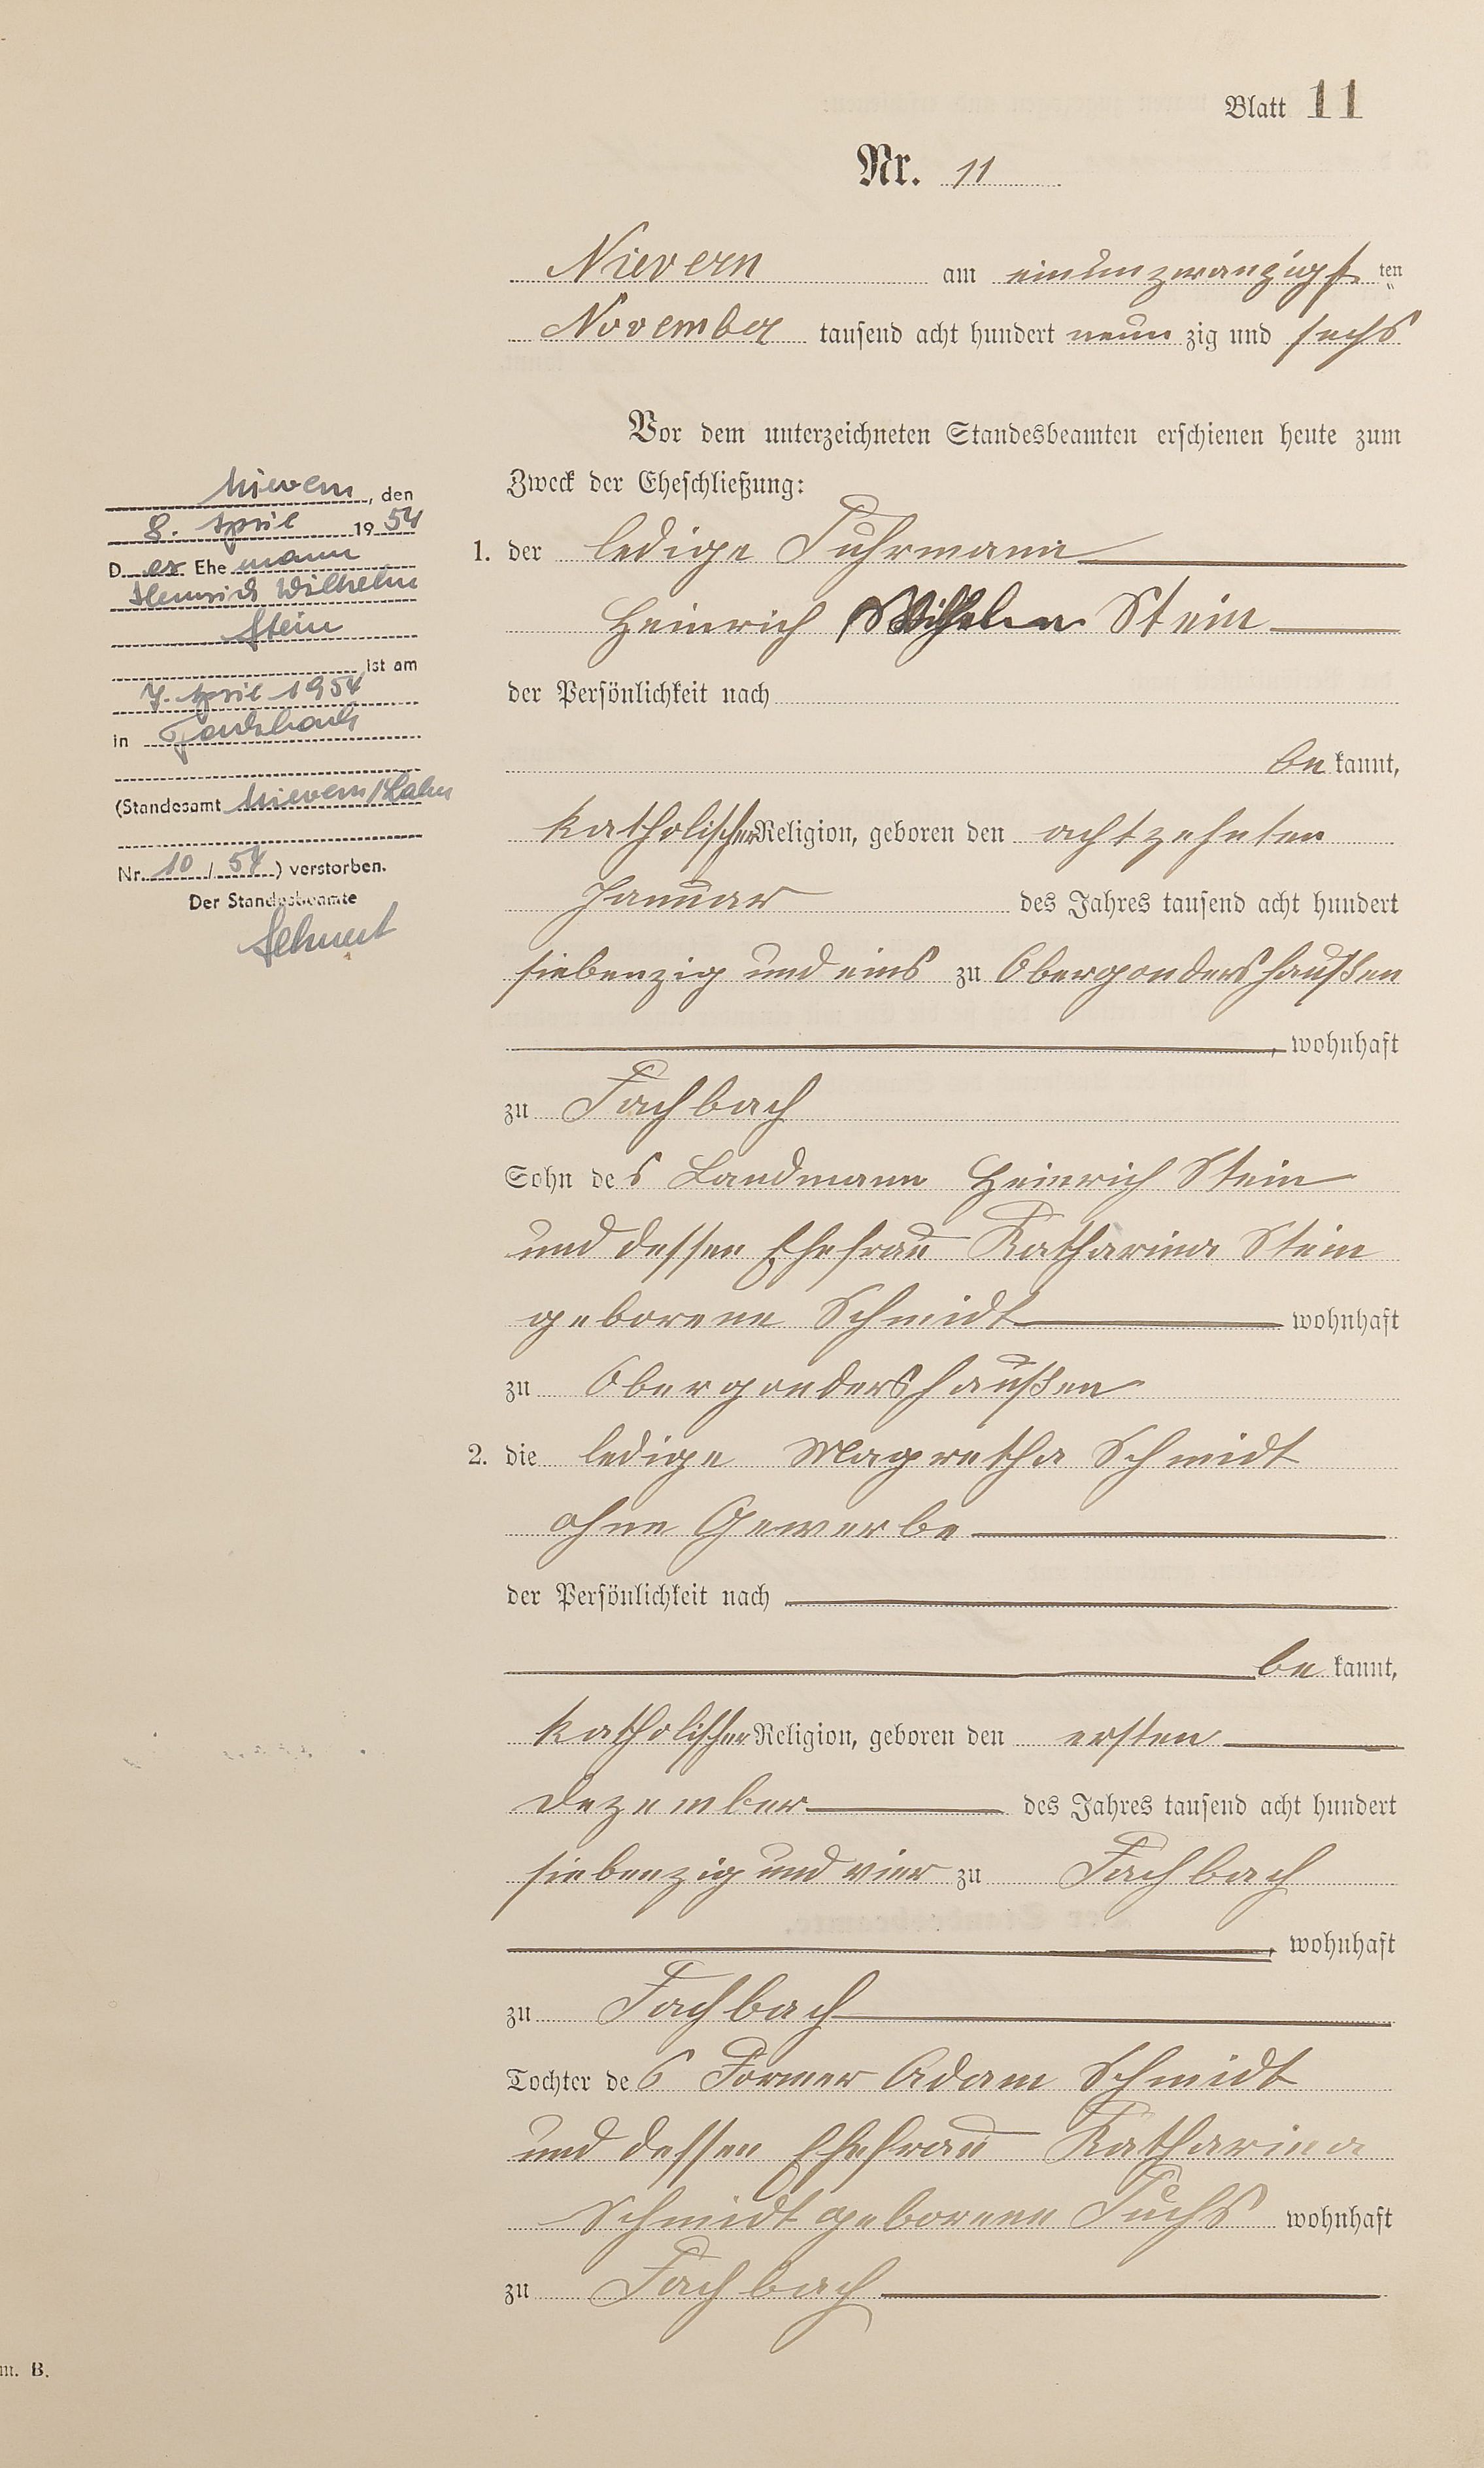 Blatt 11
Nr. 11
Nievern am einunzwanzigst ten
November tausend acht hundert neun zig und sechs
Vor dem unterzeichneten Standesbeamten erschienen heute zum
Zweck der Eheschließung:
1. der ledige Fuhrmann
Heinrich Wilhelm Stein
der Persönlichkeit nach
be kannt,
katholischer Religion, geboren den achtzehnten
Januar des Jahres tausend acht hundert
siebenzig und eins zu Obergondershaußen
, wohnhaft
zu Fachbach
Sohn des Landmann Heinrich Stein
und dessen Ehefrau Katharina Stein
geborene Schmidt wohnhaft
zu Obergondershaußen
2. die ledige Magretha Schmidt
ohne Gewerbe
der Persönlichkeit nach
be kannt,
katholischer Religion, geboren den ersten
Dezember des Jahres tausend acht hundert
siebenzig und vier zu Fachbach
, wohnhaft
zu Fachbach
Tochter des Former Adam Schmidt
und dessen Ehefrau Katharina
Schmidt geborene Fuchs wohnhaft
zu Fachbach
Nievern, den
8. April 1954
D er Ehe mann
Heinrich Wilhelm
Stein
ist am
7. April 1954
in Fachbach
(Standesamt Nievern/Lahn
Nr. 10 / 54 ) verstorben.
Der Standesbeamte
m. B.